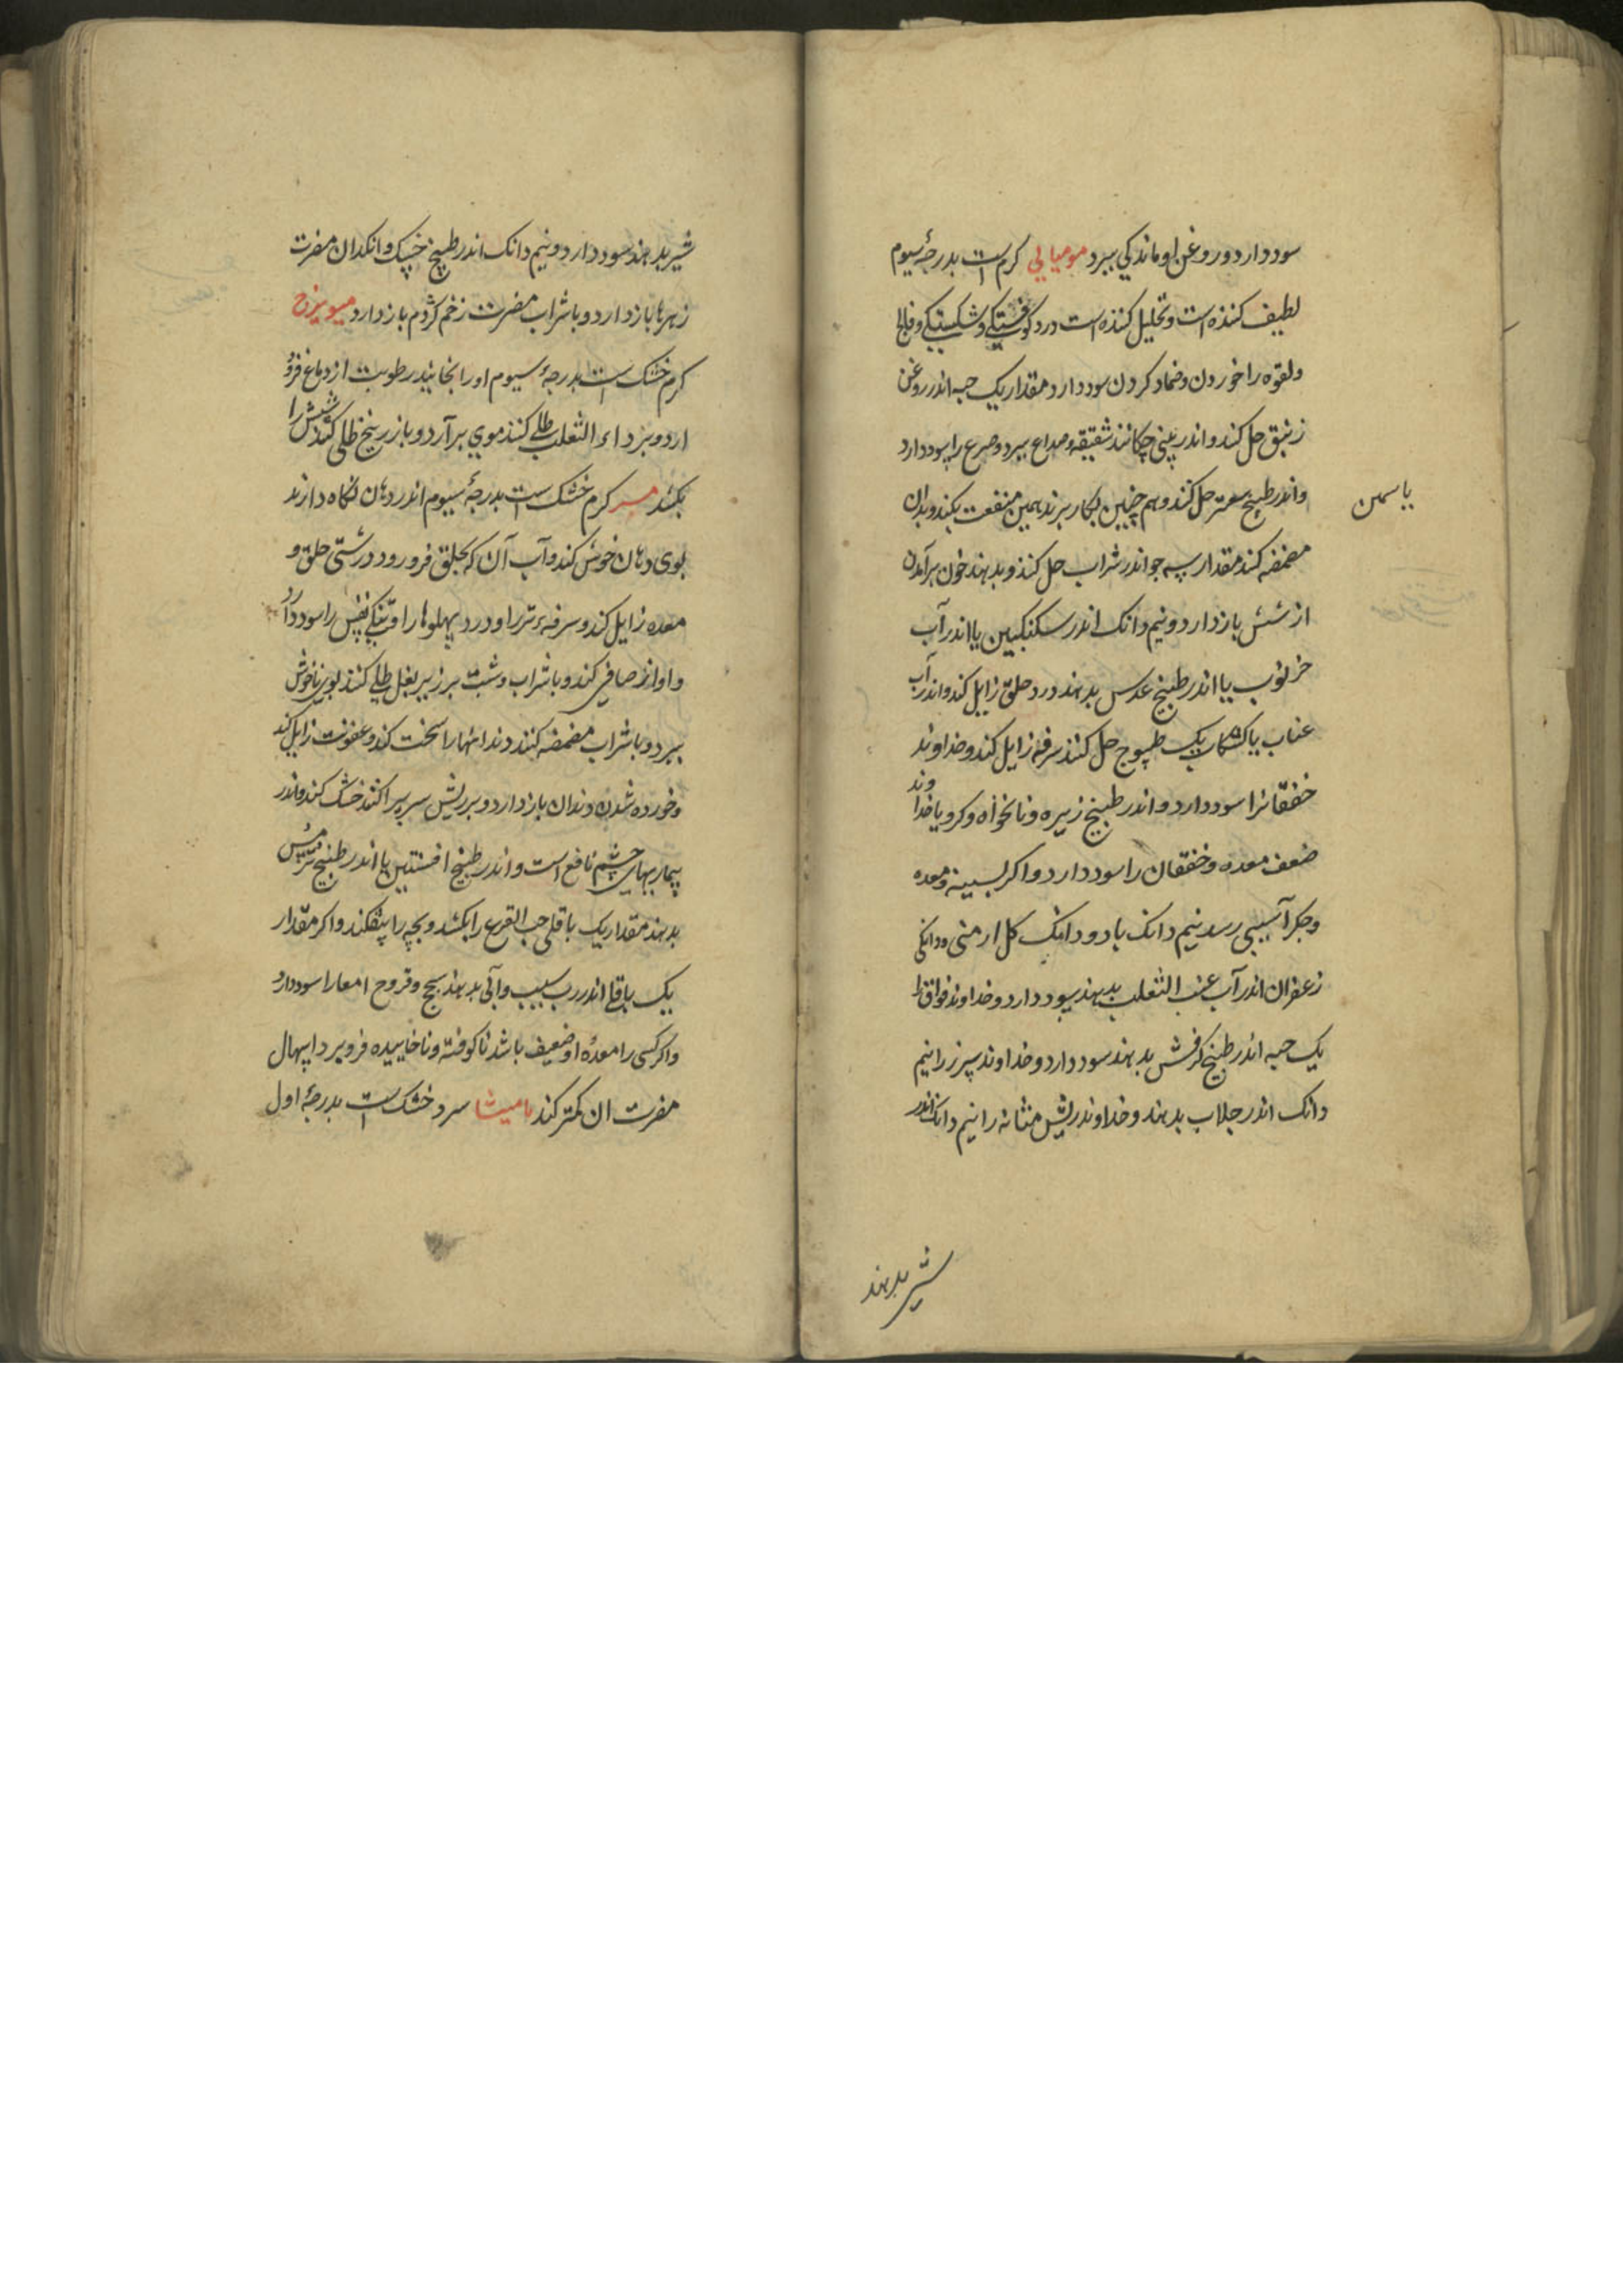 سود دارد و روغن او ماندکی ببرد مومیایی کرم است بدرجهٔ سیوم
لطیف کننده است و تحلیل کننده است درد کوفتیکی و شکستیکی و فالج
و لقوه را خوردن و ضماد کردن سود دارد مقدار یک حبه اندر روغن
زنبق حل کند و اندر بینی چکانند شقیقه و صداع ببرد و صرع را سود دارد
و اندر طبیخ سعتر حل کنند و هم چنین بکار برند همین منفعت بکند و بدان
یاسمین
مضمضه کند مقدار سه جو اندر شراب حل کنند و بدهند خون برآمدن
از شش باز دارد و نیم دانک اندر سکنکبین یا اندر آب
خرنوب یا اندر طبیخ عدس بدهند درد حلق زایل کند و اندر آب
عناب یا کشکاب یک طسوج حل کنند سرفه زایل کند و خداوند
خفقانرا سود دارد و اندر طبیخ زیره و نانخواه و کرویا خداوند
ضعف معده و خفقان را سود دارد و اکر بسینه و معده
و جکر آسیبی رسد نیم دانک با دو دانک کل ارمنی و دانکی
زعفران اندر آب عنب الثعلب بدهند سود دارد و خداوند فواق را
یک حبه اندر طبیخ کرفش بدهند سود دارد و خداوند سپرز را نیم
دانک اندر جلاب بدهند و خداوند ریش مثانه را نیم دانک اندر
شیر بدهند
شیر بدهند سود دارد و نیم دانک اندر طبیخ خسک و انکدان مضرت
زهرها باز دارد و با شراب مضرت زخم کژدم باز دارد میویزج
کرم خشک است بدرجهٔ سیوم او را بخایند رطوبت از دماغ فرو
ارد و بر داء الثعلب طلی کنند موی برآرد و با زرنیخ طلی کنند شپش را
بکشد مر کرم خشک است بدرجهٔ سیوم اندر دهان نکاه دارند
بوی دهان خوش کند و آب آن که بحلق فرو رود درشتی حلق و
معده زایل کند و سرفهٔ تر را و درد پهلوها را و تنکی نفس را سود دارد
و اواز صافی کند و با شراب و شبت بر زیر بغل طلی کنند بوی ناخوش
ببرد و با شراب مضمضه کنند دندانها را سخت کند و عفونت زایل کند
و خورده شدن دندان باز دارد و بر ریش سر پراکنند خشک کند و اندر
بیماریهای چشم نافع است و اندر طبیخ افسنتین یا اندر طبیخ ترمس
بدهند مقدار یک باقلی حب القرع را بکشد و بچه را بیفکند و اکر مقدار
یک باقلی اندر رب سیب و آبی بدهند سحج و قروح امعا را سود دارد
و اکر کسی را معدهٔ او ضعیف باشد ناکوفته و ناخاییده فرو برد اسهال
مضرت ان کمتر کند مامیثا سرد خشک است بدرجهٔ اول